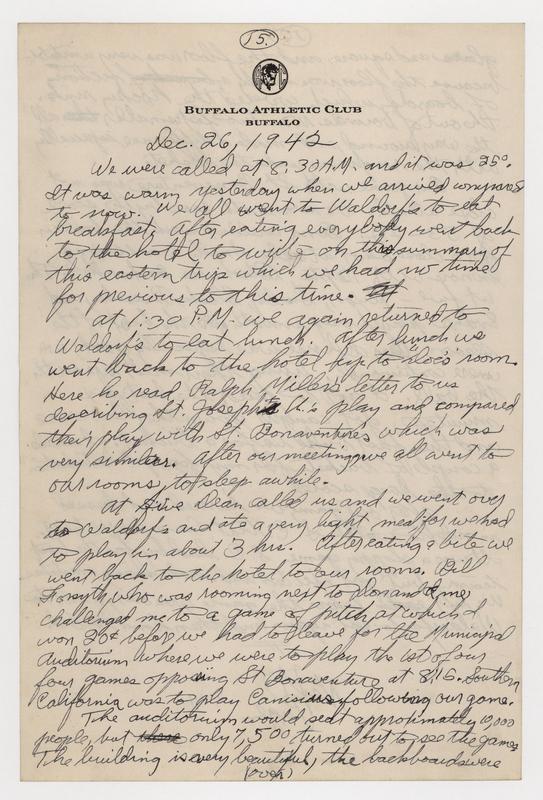 15.
BUFFALO ATHLETIC CLUB
BUFFALO
Dec. 26, 1942
We were called at 8:30 A.M. and it was 25°.
It was warm yesterday when we arrived compared
to now. We all went to Waldorf's to eat
breakfast, after eating everybody went back
to the hotel to write on this summary of
this eastern trip which we had no time
for previous to this time. At
at 1:30 P.M. we again returned to
Waldorf's to eat lunch. After lunch we
went back to the hotel up to "doc's" room.
Here he read Ralph Miller's letter to us
describing St. Joseph's U.'s play and compared
their play with St. Bonaventure's which was
very similar. After our meeting we all went to
our rooms, to sleep awhile.
At five Dean called us and we went over
to Waldorf's and ate a very light meal for we had
to play in about 3 hrs. After eating a bite we
went back to the hotel to our rooms. Bill
Forsyth, who was rooming next to Don and me
challenged me to a game of pitch at which I
won 20¢ before we had to leave for the Municipal
Auditorium where we were to play the 1st of our
four games opposing St Bonaventure at 8:15. Southern
California was to play Canisius following our game.
The auditorium would seat approximately 10,000
people, but only 7,500 turned out to see the games
The building is very beautiful, the backboards were
(over)